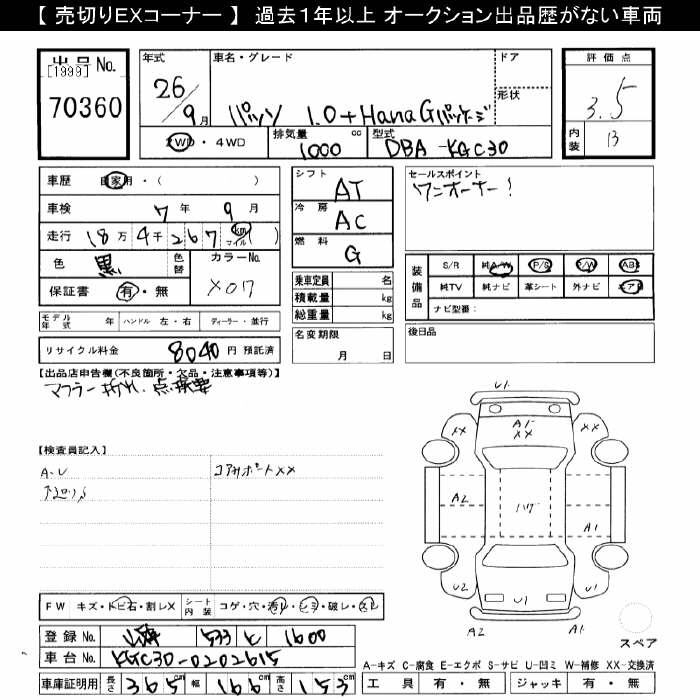 【 売切りEXコーナー 】 過去1年以上 オークション出品歴がない車両
出品 No.
[1999]
70360
年式 26/9月
車名・グレード パッソ 1.0+Hana Gパッケージ
ドア
形状
2WD・4WD
排気量 1000 cc
型式 DBA-KGC30
評価点 3.5
内装 B
車歴 自家用・( )
車検 7年 9月
走行 18万4千267 (km マイル)( )
色 黒 色替
カラーNo. X07
保証書 有・無
モデル年式 年 ハンドル 左・右 ディーラー・並行
リサイクル料金 8040円 預託済
シフト AT
冷房 AC
燃料 G
乗車定員 名
積載量 kg
総重量 kg
名変期限 月 日
セールスポイント
ワンオーナー!
装備品 S/R 純A/W P/S P/W ABS
純TV 純ナビ 革シート 外ナビ エアB
ナビ型番:
後日品
【出品店申告欄(不良箇所・欠品・注意事項等)】
マフラー折れ、点検要
【検査員記入】
A・U
コアサポートXX
U1
XX
A1
XX
XX
A2
ハゲ
A1
U2
U1
U1
A2
A1
スペア
FW キズ・トビ石・割レX シート内装 コゲ・穴・汚レ・シミ・破レ・スレ
登録No. 533 と 1600
車台No. KGC30-0202615
車庫証明用 長さ 365cm 幅 166cm 高さ 153
A-キズ C-腐食 E-エクボ S-サビ U-凹ミ W-補修 XX-交換済
工具 有・無 ジャッキ 有・無